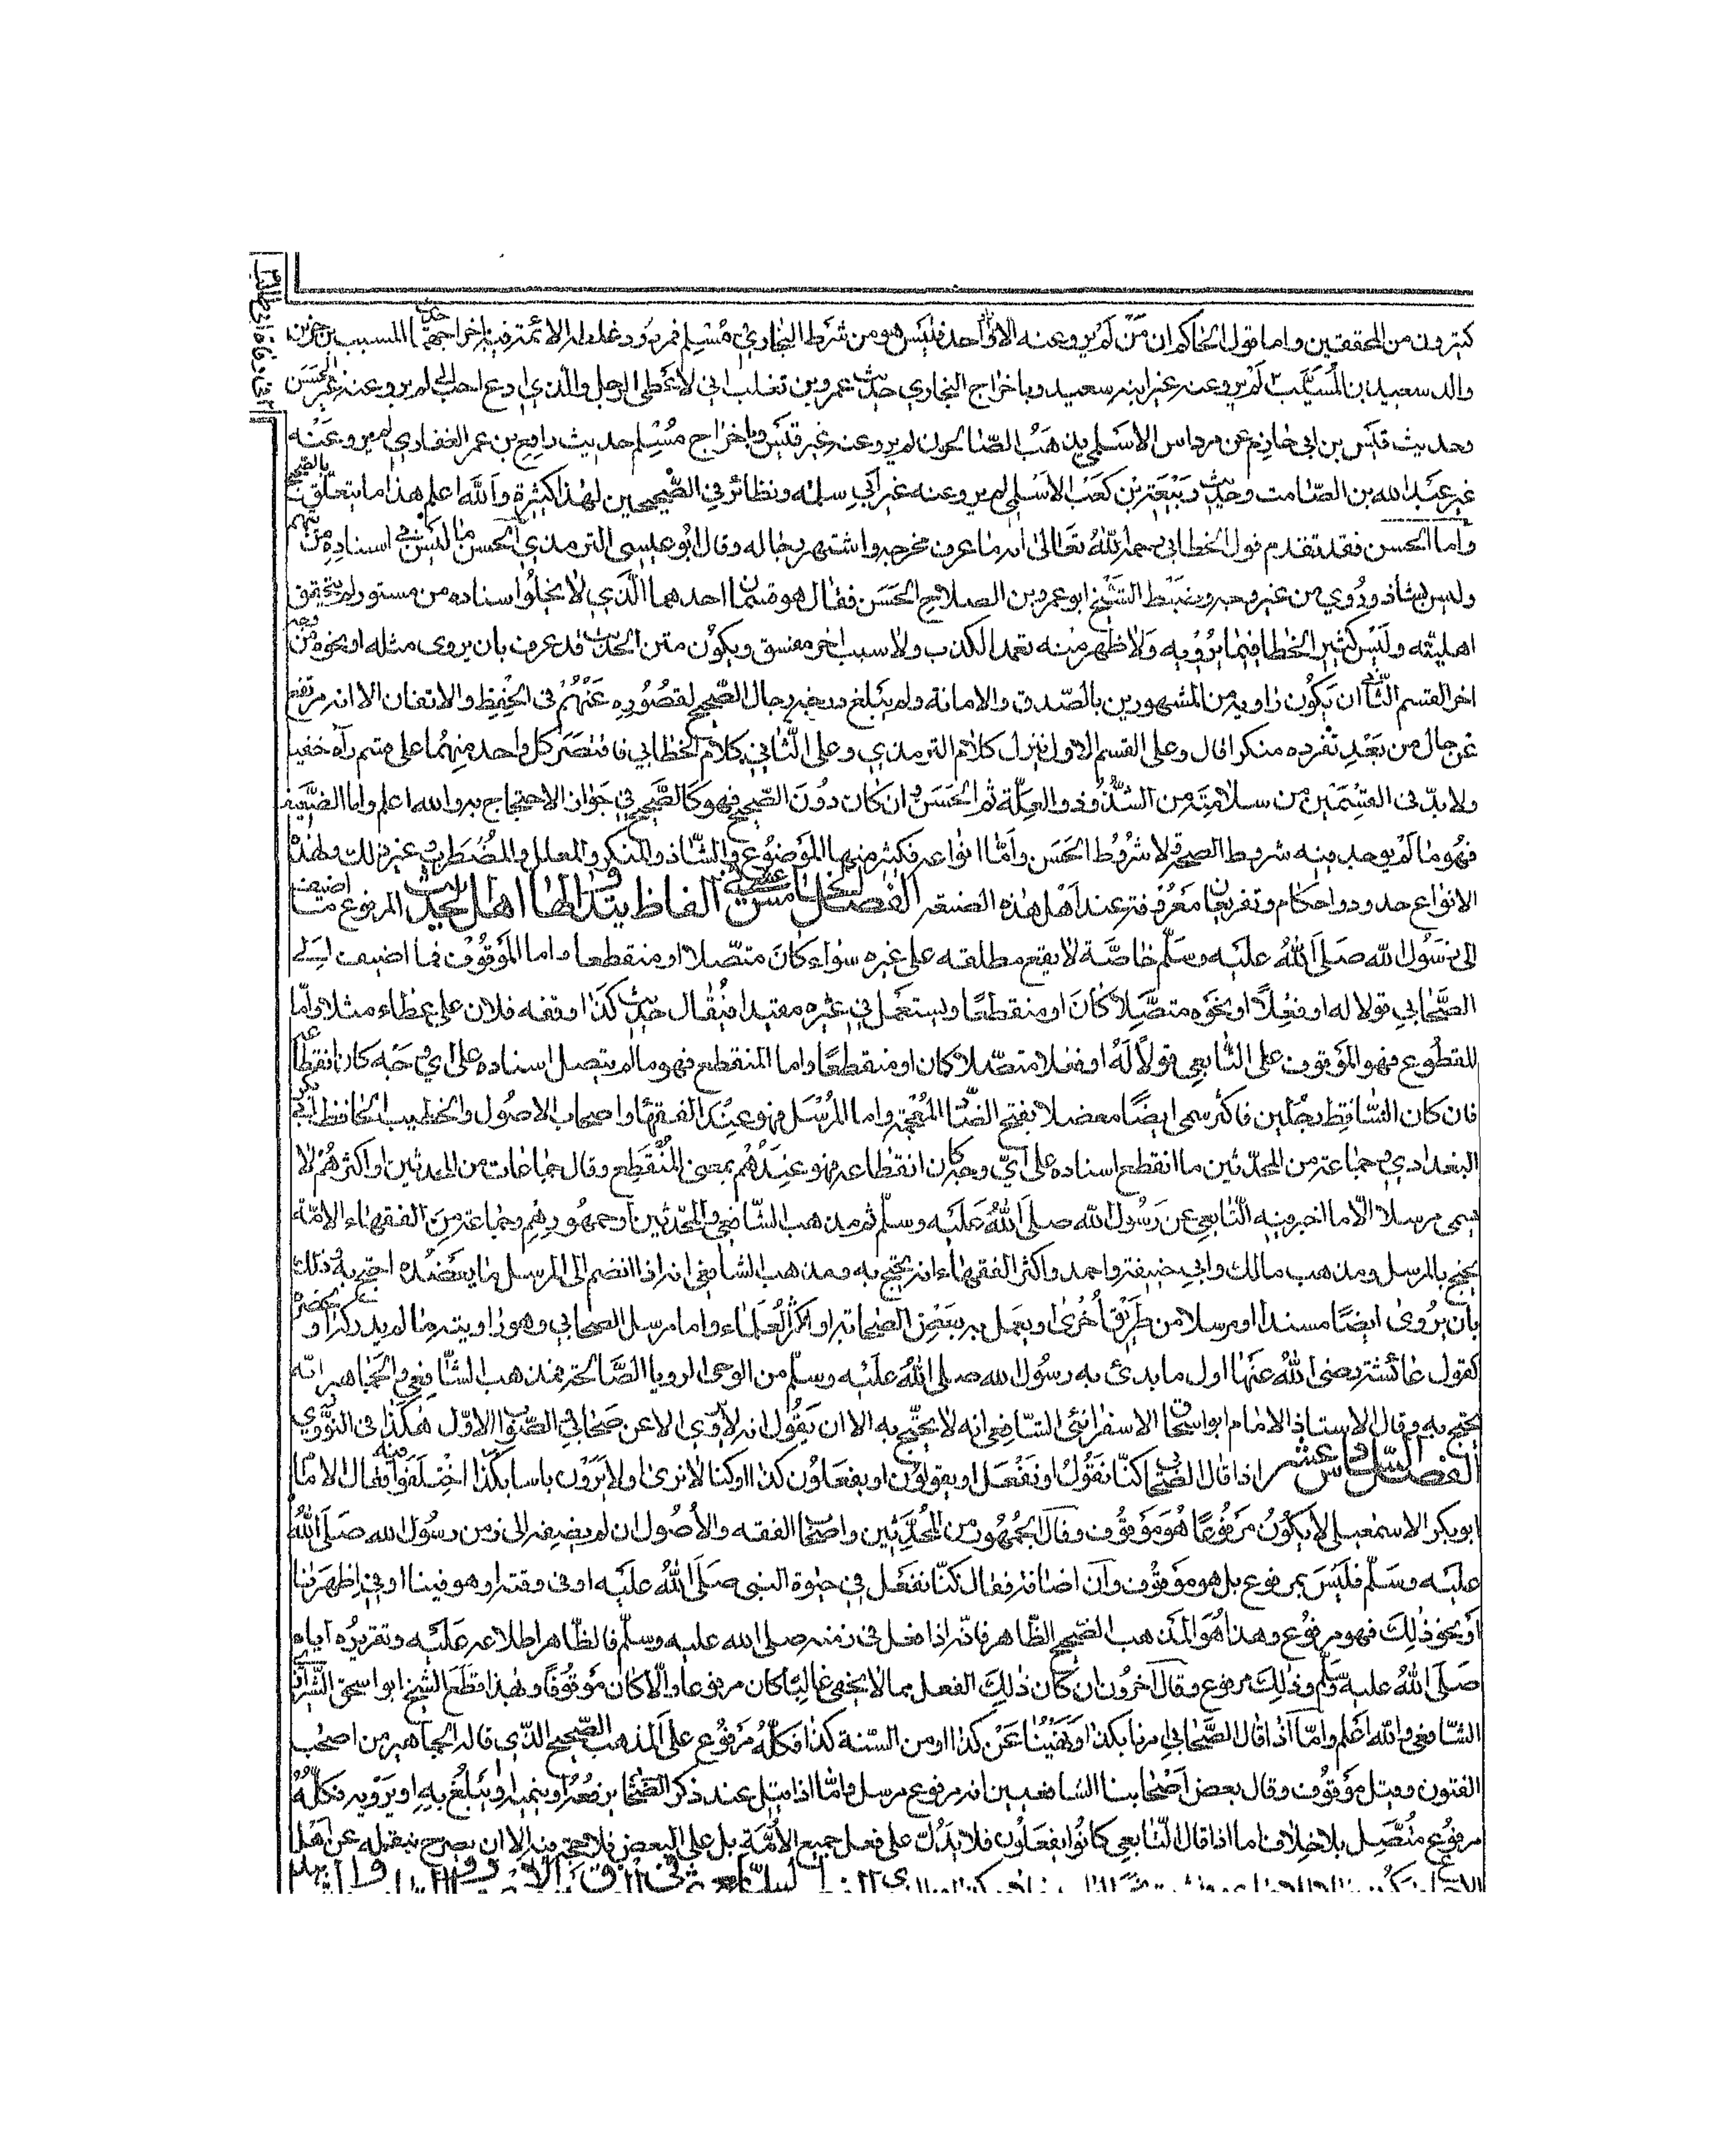 كثيرون من المحققين واما قول الحاكم ان من لم يرو عنه الا واحد فليس هو من شرط البخاري ومسلم فمردود غلطه الائمة فيه باخراجهما حديث المسيب بن حزن
والد سعيد بن المسيب لم يرو عنه غير ابنه سعيد وباخراج البخاري حديث عمرو بن تغلب اني لاعطي الرجل والذي ادع احب الي لم يرو عنه غير الحسن
وحديث قيس بن ابي حازم عن مرداس الاسلمي يذهب الصالحون لم يرو عنه غير قيس وباخراج مسلم حديث رافع بن عمر الغفاري لم يرو عنه
غير عبد الله بن الصامت وحديث ربيعة بن كعب الاسلمي لم يرو عنه غير ابي سلمة ونظائر في الصحيحين لهذا كثيرة والله اعلم هذا ما يتعلق بالصحيح
واما الحسن فقد تقدم قول الخطابي رحمه الله تعالى انه ما عرف مخرجه واشتهر رجاله وقال ابو عيسى الترمذي الحسن ما ليس في اسناده من يتهم
وليس بشاذ وروي من غير وجه وضبط الشيخ ابو عمرو بن الصلاح الحسن فقال هو قسمان احدهما الذي لا يخلوا اسناده من مستور لم يتحقق
اهليته وليس كثير الخطا فيما يرويه ولا ظهر منه تعمد الكذب ولا سبب اخر مفسق ويكون متن الحديث قد عرف بان يروى مثله او نحوه من وجه
اخر القسم الثاني ان يكون راويه من المشهورين بالصدق والامانة ولم يبلغ درجة رجال الصحيح لقصوره عنهم في الحفظ والاتقان الا انه مرتفع
عن حال من يعد تفرده منكرا قال وعلى القسم الاول ينزل كلام الترمذي وعلى الثاني كلام الخطابي فاقتصر كل واحد منهما على قسم رآه خفيا
ولا بد في القسمين من سلامته من الشذوذ والعلة ثم الحسن وان كان دون الصحيح فهو كالصحيح في جواز الاحتجاج به والله اعلم واما الضعيف
فهو ما لم يوجد فيه شروط الصحة ولا شروط الحسن واما انواعه فكثير منها الموضوع والشاذ والمنكر والمعلل والمضطرب وغير ذلك ولهذه
الانواع حدود واحكام وتفريعات معروفة عند اهل هذه الصنعة الفصل الخامس عشر في الفاظ يتداولها اهل الحديث المرفوع ما اضيف
الى رسول الله صلى الله عليه وسلم خاصة لا يقع مطلقه على غيره سواء كان متصلا او منقطعا واما الموقوف فما اضيف الى
الصحابي قولا له او فعلا او نحوه متصلا كان او منقطعا ويستعمل في غيره مقيدا فيقال حديث كذا وقفه فلان على عطاء مثلا واما
المقطوع فهو الموقوف على التابعي قولا له او فعلا متصلا كان او منقطعا واما المنقطع فهو ما لم يتصل اسناده على اي وجه كان انقطاعه
فان كان الساقط رجلين فاكثر سمي ايضا معضلا بفتح الضاد المعجمة واما المرسل فهو عند الفقهاء واصحاب الاصول والخطيب الحافظ ابي بكر
البغدادي وجماعة من المحدثين ما انقطع اسناده على اي وجه كان انقطاعه فهو عندهم بمعنى المنقطع وقال جماعات من المحدثين او اكثرهم لا
يسمى مرسلا الا ما اخبر فيه التابعي عن رسول الله صلى الله عليه وسلم ثم مذهب الشافعي والمحدثين او جمهورهم وجماعة من الفقهاء الامة
يحتج بالمرسل ومذهب مالك وابي حنيفة واحمد واكثر الفقهاء انه يحتج به ومذهب الشافعي انه اذا انضم الى المرسل ما يعضده احتج به وذلك
بان يروى ايضا مسندا او مرسلا من طريق اخرى او يعمل به بعض الصحابة او اكثر العلماء واما مرسل الصحابي وهو رواية ما لم يدركه او يحضره
كقول عائشة رضي الله عنها اول ما بدئ به رسول الله صلى الله عليه وسلم من الوحي الرويا الصالحة فمذهب الشافعي والجماهير انه
يحتج به وقال الاستاذ الامام ابو اسحاق الاسفرائني الشافعي انه لا يحتج به الا ان يقول انه لا يروي الا عن صحابي الصواب الاول هكذا في النووي
الفصل السادس عشر اذا قال الصحابي كنا نقول او نفعل او يقولون او يفعلون كذا او كنا لا نرى او لا يرون باسا بكذا اختلفوا فيه فقال الامام
ابو بكر الاسمعيلي لا يكون مرفوعا هو موقوف وقال الجمهور من المحدثين واصحاب الفقه والاصول ان لم يضفه الى زمن رسول الله صلى الله
عليه وسلم فليس بمرفوع بل هو موقوف وان اضافه فقال كنا نفعل في حيوة النبي صلى الله عليه او في وقته او هو فينا او بين اظهرنا
او نحو ذلك فهو مرفوع وهذا هو المذهب الصحيح الظاهر فانه اذا فعل في زمنه صلى الله عليه وسلم فالظاهر اطلاعه عليه وتقريره اياه
صلى الله عليه وسلم وذلك مرفوع وقال اخرون ان كان ذلك الفعل مما لا يخفى غالبا كان مرفوعا والا كان موقوفا وبهذا قطع الشيخ ابو اسحق الشيرازي
الشافعي والله اعلم واما اذا قال الصحابي امرنا بكذا او نهينا عن كذا او من السنة كذا فكله مرفوع على المذهب الصحيح الذي قاله الجماهير من اصحاب
الفنون وقيل موقوف وقال بعض اصحابنا الشافعيين انه مرفوع مرسل واما اذا قيل عند ذكر الصحابي يرفعه او ينميه او يبلغ به او يرويه فكله
مرفوع متصل بلا خلاف اما اذا قال التابعي كانوا يفعلون فلا يدل على فعل جميع الامة بل على البعض فلا حجة فيه الا ان يصرح بنقله عن اهل